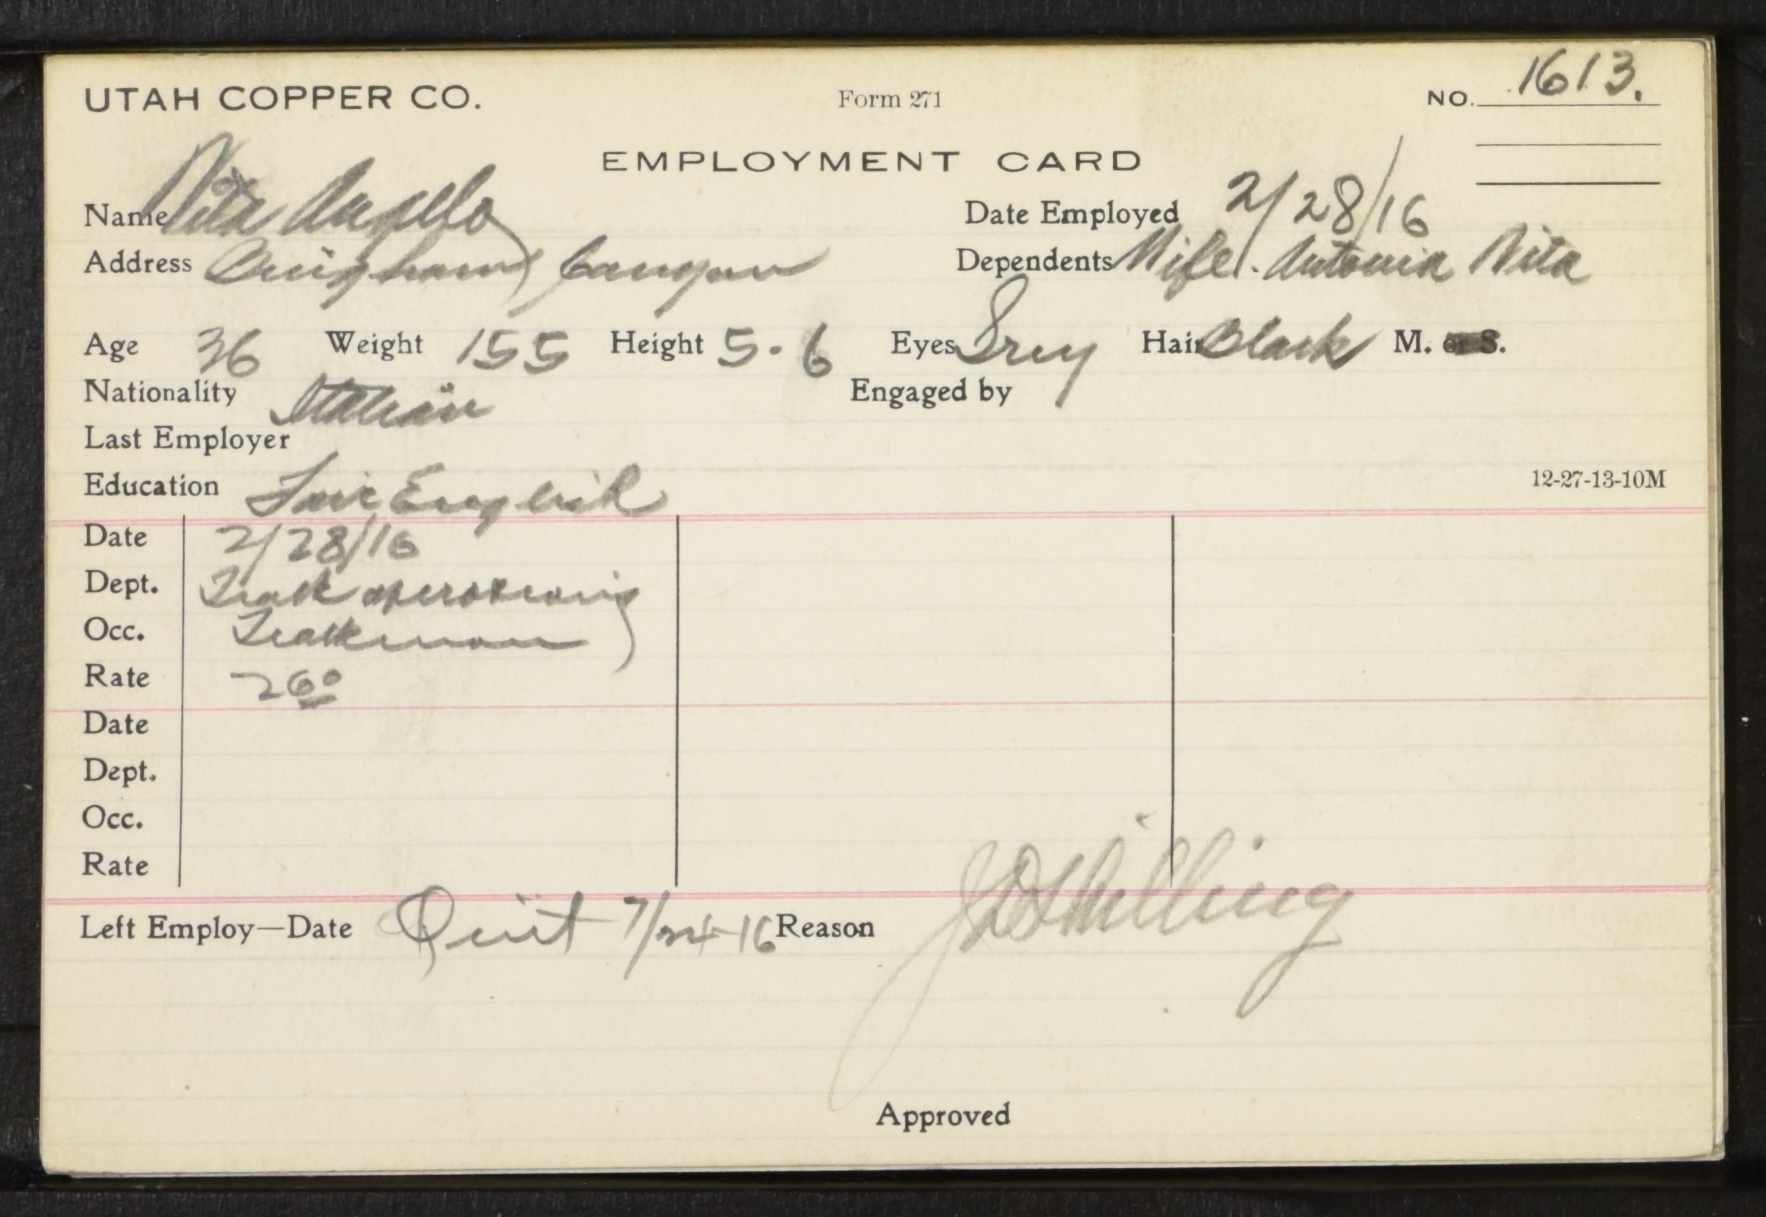 UTAH COPPER CO. Form 271 NO. 1613.
EMPLOYMENT CARD
Name Nita Angelo Date Employed 2/28/16
Address Bingham Canyon Dependents Wife. Antonia Nita
Age 36 Weight 155 Height 5-6 Eyes Grey Hair Black M. or S.
Nationality Italian Engaged by
Last Employer
Education Fair English 12-27-13-10M
Date 2/28/16
Dept. Track operating
Occ. Trackman
Rate 2600
Date
Dept.
Occ.
Rate
Left Employ—Date Quit 7/24-16 Reason
Approved